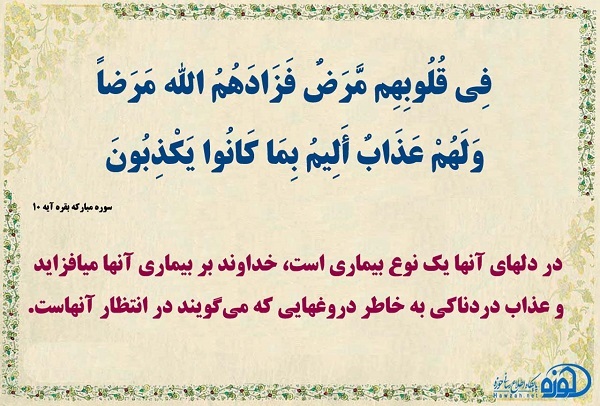 فِی قُلُوبِهِم مَّرَضٌ فَزَادَهُمُ الله مَرَضاً
وَلَهُمْ عَذَابٌ أَلِیمُ بِمَا كَانُوا یَكْذِبُونَ
سوره مبارکه بقره آیه ۱۰
در دلهای آنها یک نوع بیماری است، خداوند بر بیماری آنها میافزاید
و عذاب دردناکی به خاطر دروغهایی که می‌گویند در انتظار آنهاست.
پایگاه اطلاع رسانی حوزه
Hawzah.net